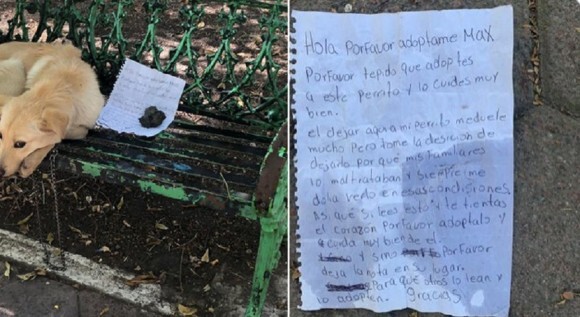 Hola Porfavor adoptame Max
Porfavor tepido que adoptes
a este perrito y lo cuides muy
bien.
el dejar aqui a mi perrito meduele
mucho Pero tome la desicion de
dejarlo Por qué mis familiares
lo maltrataban y siempre me
dolia verlo en esas condisiones.
Asi qué si lees esto y te tientas
el corazon Porfavor adoptalo y
cuida muy bien de el.
y sino Porfavor
deja la nota en su lugar.
Para qué otros lo lean y
lo adopten. Gracias